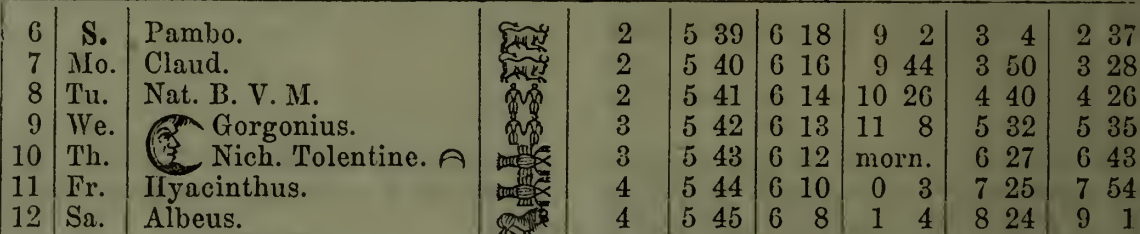 6 S. Pambo. 2 5 39 6 18 9 2 3 4 2 37
7 Mo. Claud. 2 5 40 6 16 9 44 3 50 3 28
8 Tu. Nat. B. V. M. 2 5 41 6 14 10 26 4 40 4 26
9 We. Gorgonius. 3 5 42 6 13 11 8 5 32 5 35
10 Th. Nich. Tolentine. 3 5 43 6 12 morn. 6 27 6 43
11 Fr. Hyacinthus. 4 5 44 6 10 0 3 7 25 7 54
12 Sa. Albeus. 4 5 45 6 8 1 4 8 24 9 1